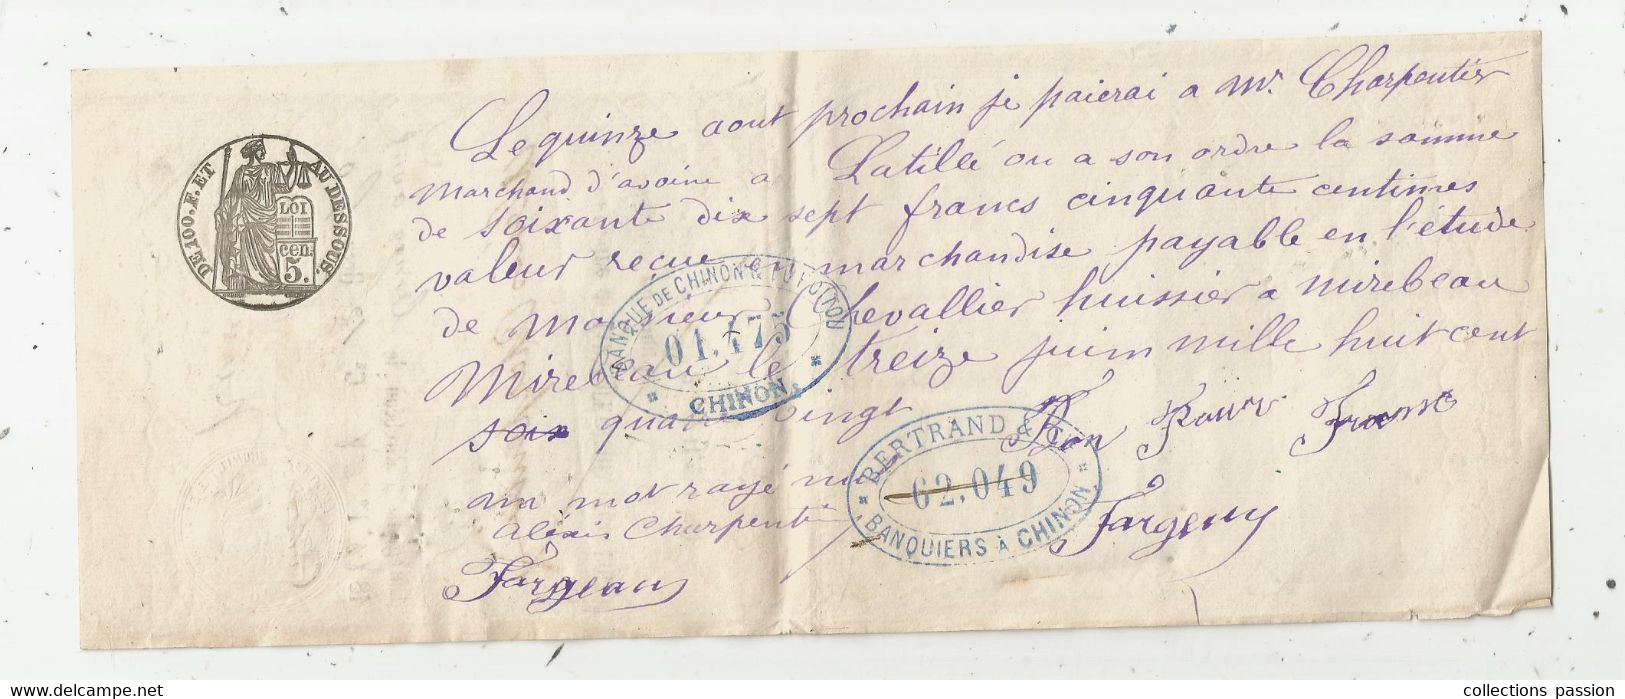 DE 100. F. ET AU DESSOUS.
LOI
5. cen.
Le quinze aout prochain je paierai a Mr. Charpentier
Marchand d'avoine a Latillé ou a son ordre la somme
de soixante dix sept francs cinquante centimes
valeur recue en marchandise payable en l'étude
de Monsieur Chevallier huissier a mirebeau
Mirebeau le treize juin mille huit cent
soix quatre vingt Bon Pour
un mot rayé nul
alexis Charpentier
Fargeau Fargeau
BANQUE DE CHINON
01.475
CHINON
BERTRAND & Cie
62.049
BANQUIERS À CHINON
collections passion